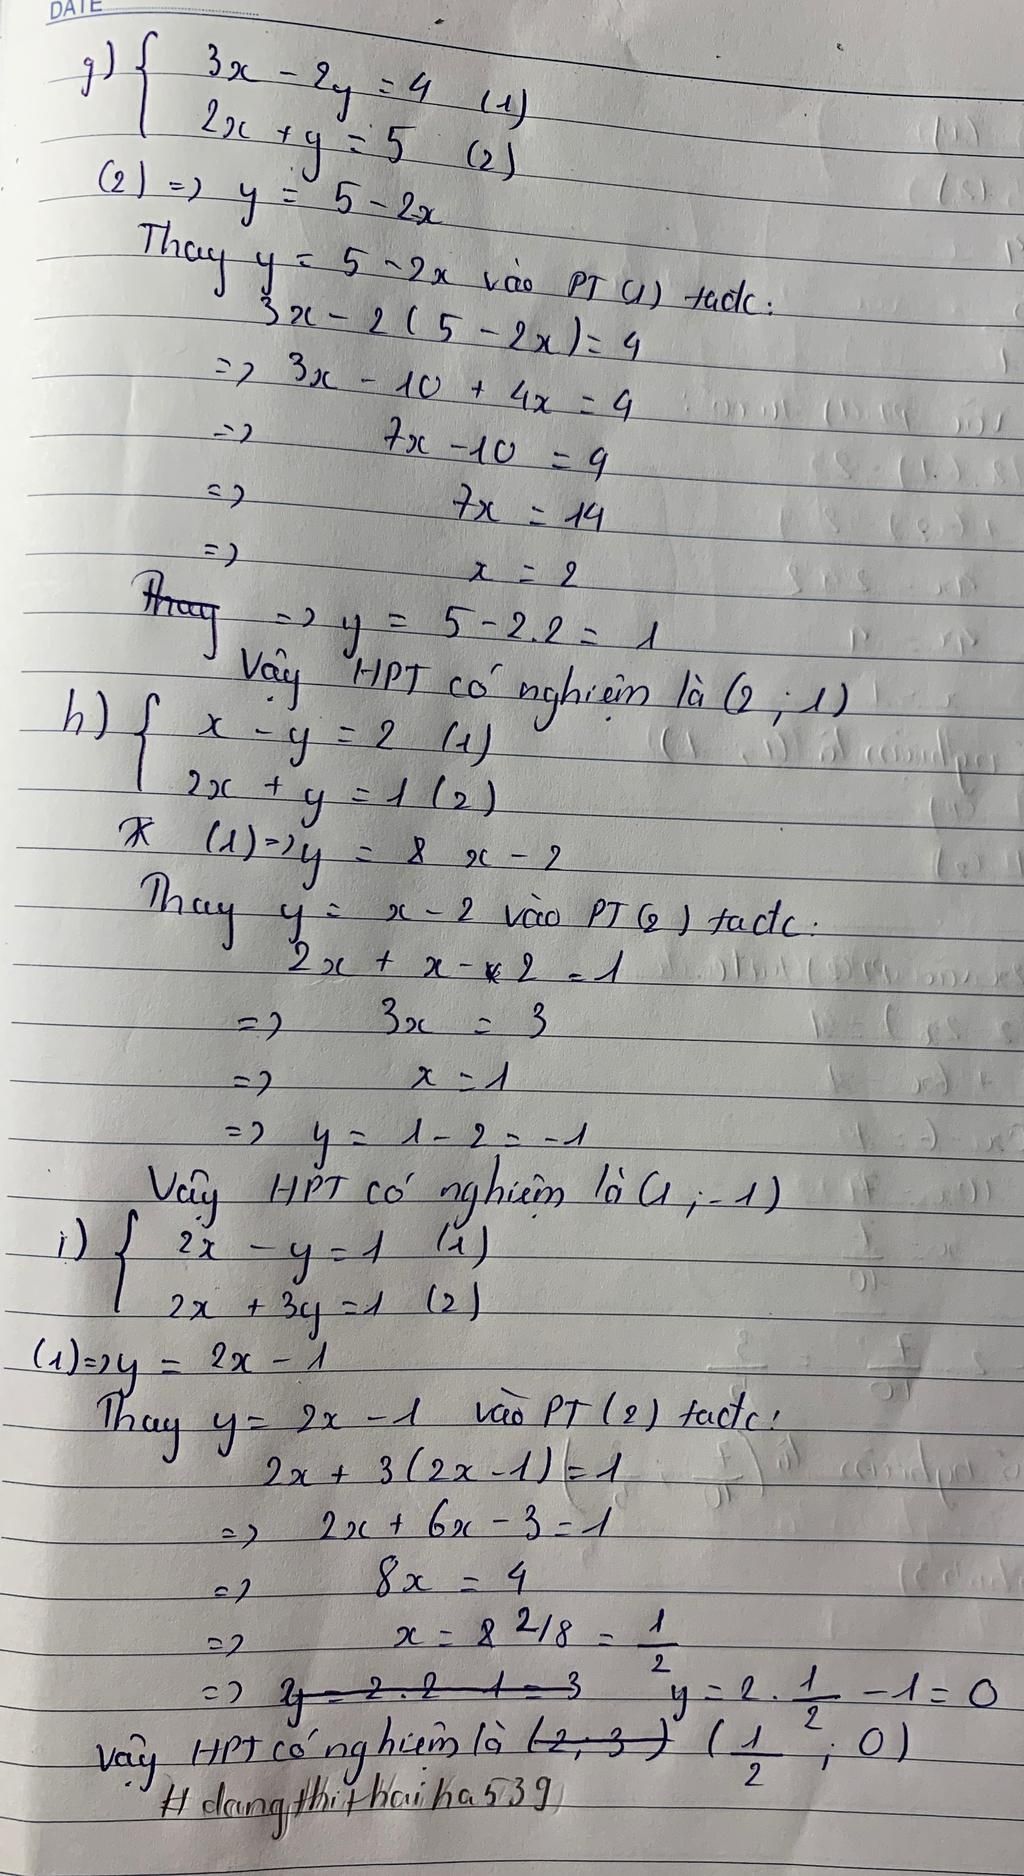 DATE
g) { 3x - 2y = 4 (1)
2x + y = 5 (2)
(2) => y = 5 - 2x
Thay y = 5 - 2x vào PT (1) tađc:
3x - 2(5 - 2x) = 4
=> 3x - 10 + 4x = 4
=> 7x - 10 = 4
=> 7x = 14
=> x = 2
Thay => y = 5 - 2.2 = 1
Vậy HPT có nghiệm là (2 ; 1)
h) { x - y = 2 (1)
2x + y = 1 (2)
(1) => y = x - 2
Thay y = x - 2 vào PT (2) tađc:
2x + x - 2 = 1
=> 3x = 3
=> x = 1
=> y = 1 - 2 = -1
Vậy HPT có nghiệm là (1 ; -1)
i) { 2x - y = 1 (1)
2x + 3y = 1 (2)
(1) => y = 2x - 1
Thay y = 2x - 1 vào PT (2) tađc:
2x + 3(2x - 1) = 1
=> 2x + 6x - 3 = 1
=> 8x = 4
=> x = 1/2
=> y = 2.2 - 1 = 3 y = 2 . 1/2 - 1 = 0
Vậy HPT có nghiệm là (2; 3) (1/2 ; 0)
# dangthithaiha539